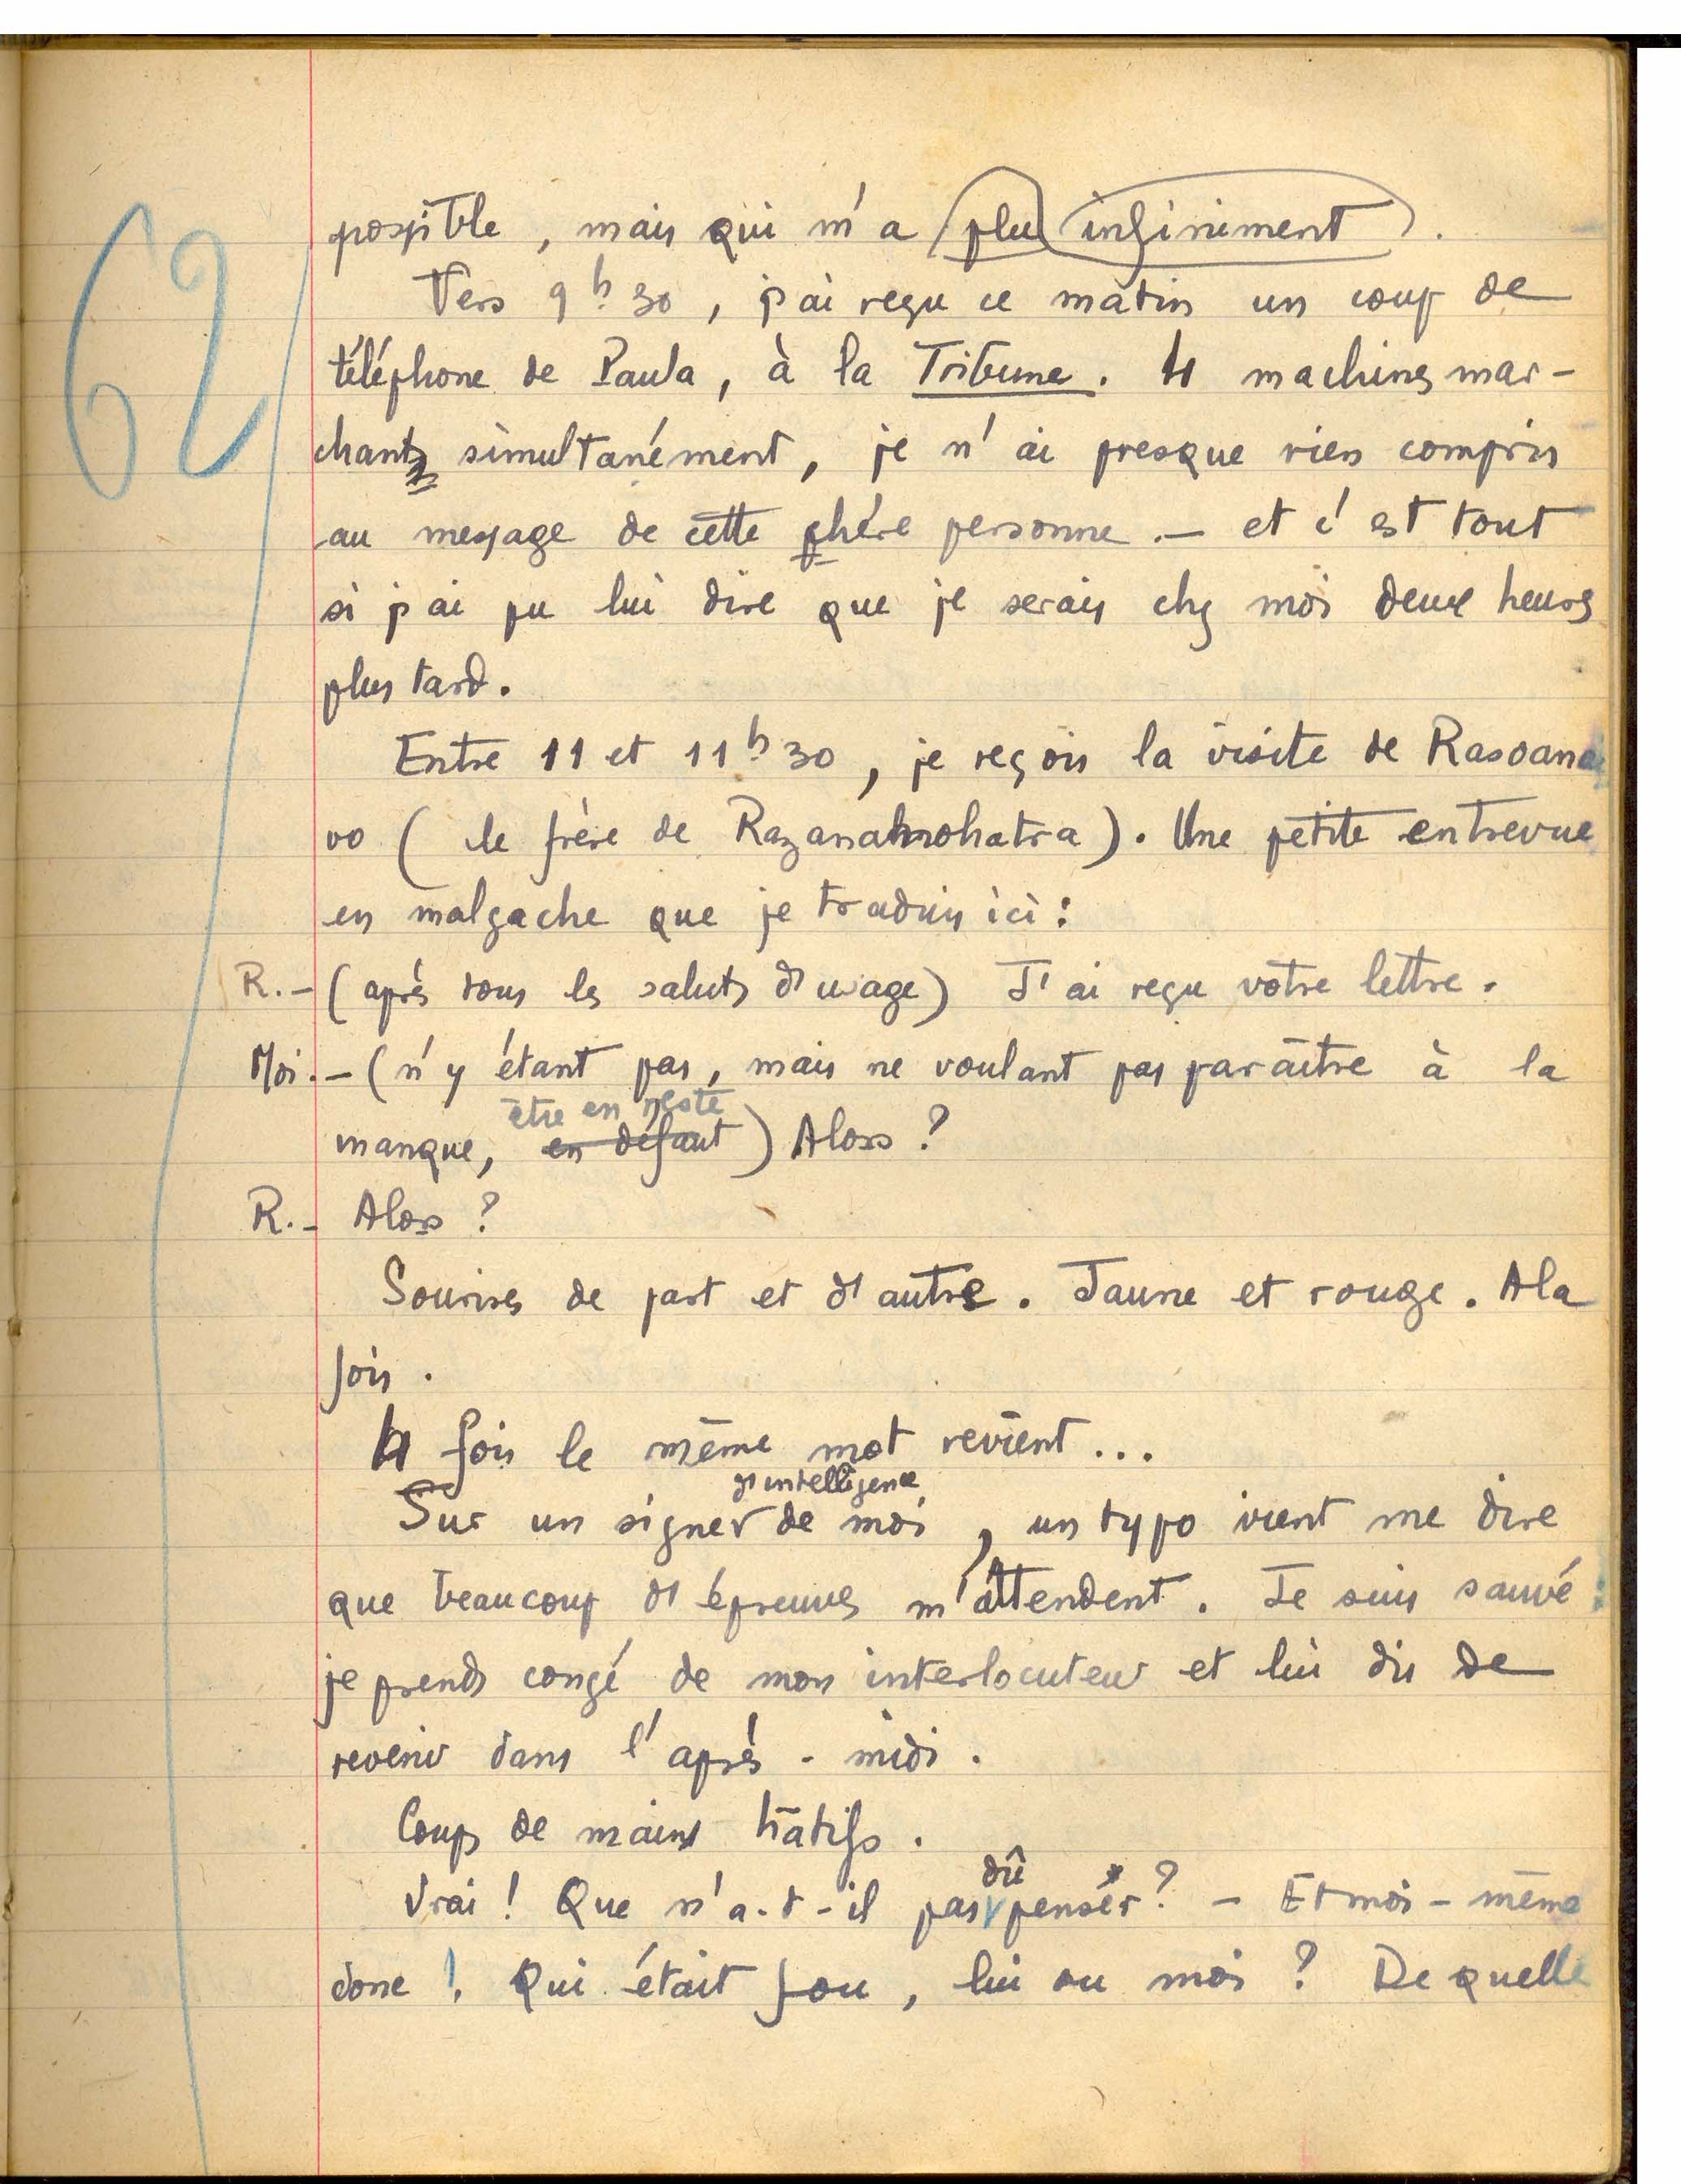 62
possible, mais qui m'a plu infiniment.
Vers 9h30, j'ai reçu ce matin un coup de
téléphone de Paula, à la Tribune. 4 machines mar-
chant simultanément, je n'ai presque rien compris
au message de cette chère personne. — et c'est tout
si j'ai pu lui dire que je serais chez moi deux heures
plus tard.
Entre 11 et 11h30, je reçois la visite de Rasoana
vo (le frère de Razanamohatra). Une petite entrevue
en malgache que je traduis ici :
R. — (après tous les saluts d'usage) J'ai reçu votre lettre.
Moi. — (n'y étant pas, mais ne voulant pas paraître à la
être en reste
manque, en défaut) Alors ?
R. — Alors ?
Sourires de part et d'autre. Jaune et rouge. A la
fois.
4 fois le même mot revient...
d'intelligence
Sur un signe de moi, un typo vient me dire
que beaucoup d'épreuves m'attendent. Je suis sauvé :
je prends congé de mon interlocuteur et lui dis de
revenir dans l'après-midi.
Coups de mains hâtifs.
dû
Vrai ! Que n'a-t-il pas penser ? — Et moi-même
donc ! Qui était fou, lui ou moi ? De quelle